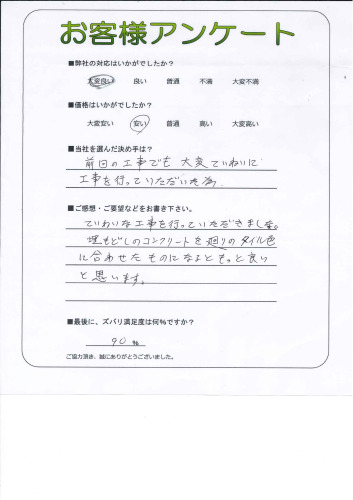 お客様アンケート
■弊社の対応はいかがでしたか？
大変良い 良い 普通 不満 大変不満
■価格はいかがでしたか？
大変安い 安い 普通 高い 大変高い
■当社を選んだ決め手は？
前回の工事でも大変ていねいに
工事を行っていただいた為
■ご感想・ご要望などをお書き下さい。
ていねいな工事を行っていただきました。
埋もどしのコンクリートを廻りのタイル色
に合わせたものになるともっと良い
と思います。
■最後に、ズバリ満足度は何%ですか？
90 %
ご協力頂き、誠にありがとうございました。